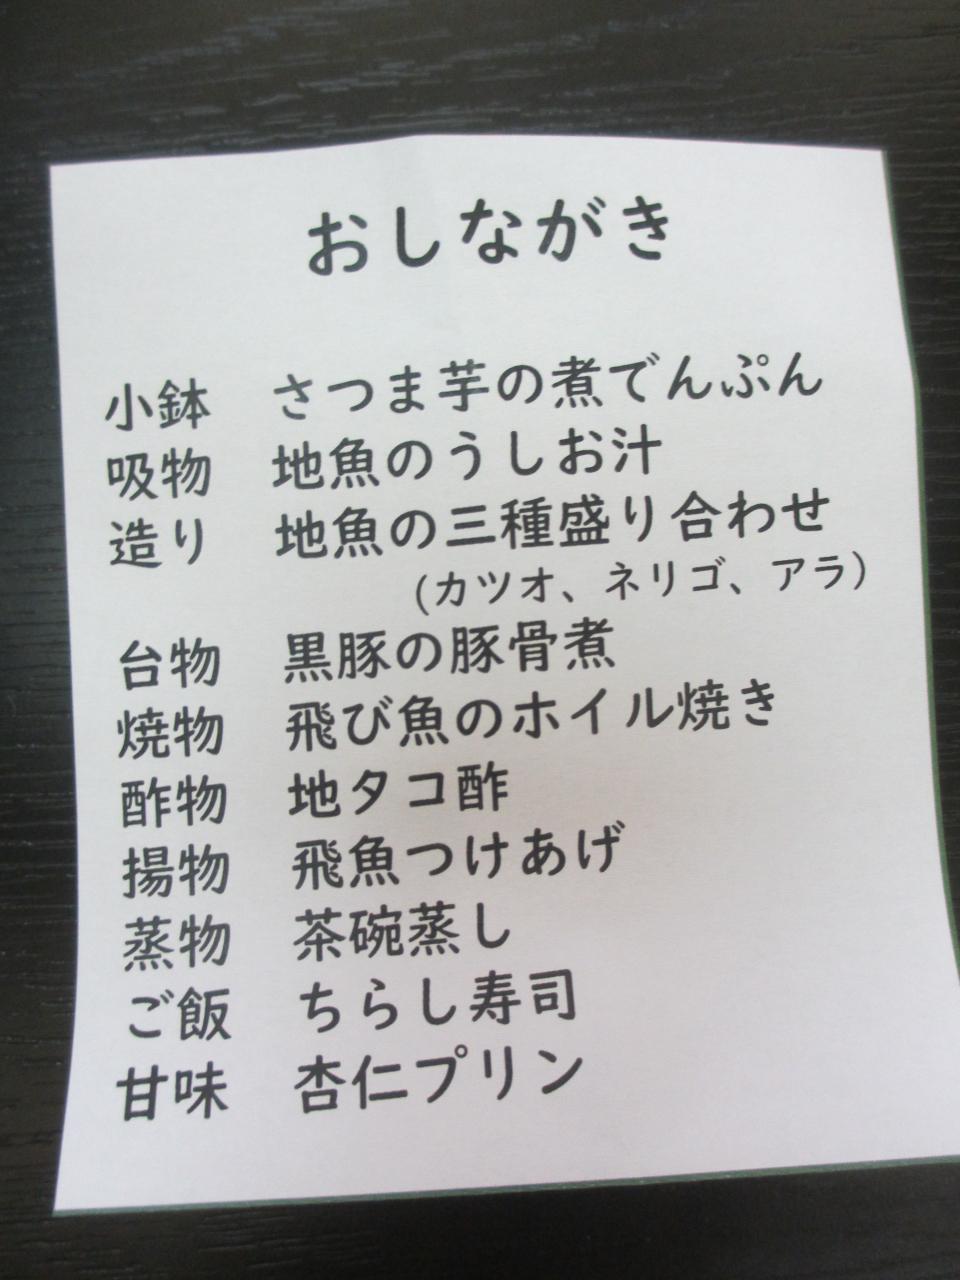 おしながき
小鉢　さつま芋の煮でんぷん
吸物　地魚のうしお汁
造り　地魚の三種盛り合わせ
(カツオ、ネリゴ、アラ)
台物　黒豚の豚骨煮
焼物　飛び魚のホイル焼き
酢物　地タコ酢
揚物　飛魚つけあげ
蒸物　茶碗蒸し
ご飯　ちらし寿司
甘味　杏仁プリン